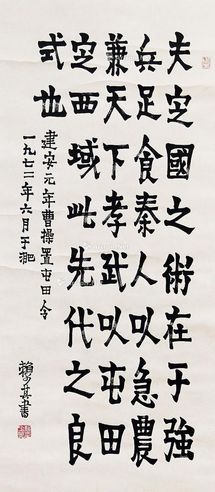 夫定國之術在于強
兵足食秦人以急農
兼天下孝武以屯田
定西域此先代之良
式也
建安元年曹操置屯田令
一九七二年六月于淝
賴少其書